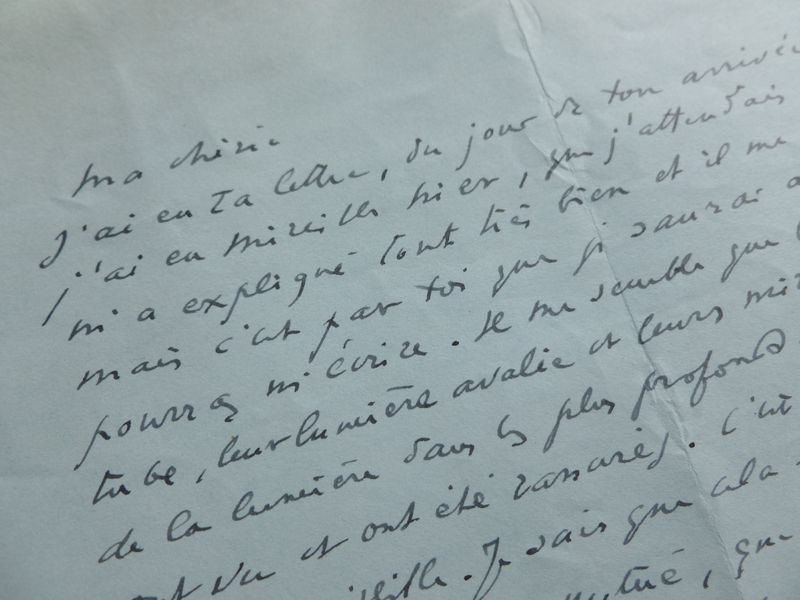 ma chérie
J'ai eu ta lettre, du jour de ton arrivée
j'ai eu mireille hier, que j'attendais
m'a expliqué tout très bien et il me
mais c'est par toi que je saurai
pourras m'écrire. Il me semble que
tube, leur lumière avalée et leurs
de la lumière dans les plus profonds
vu et ont été rassurés. C'est
Je sais que cela
que